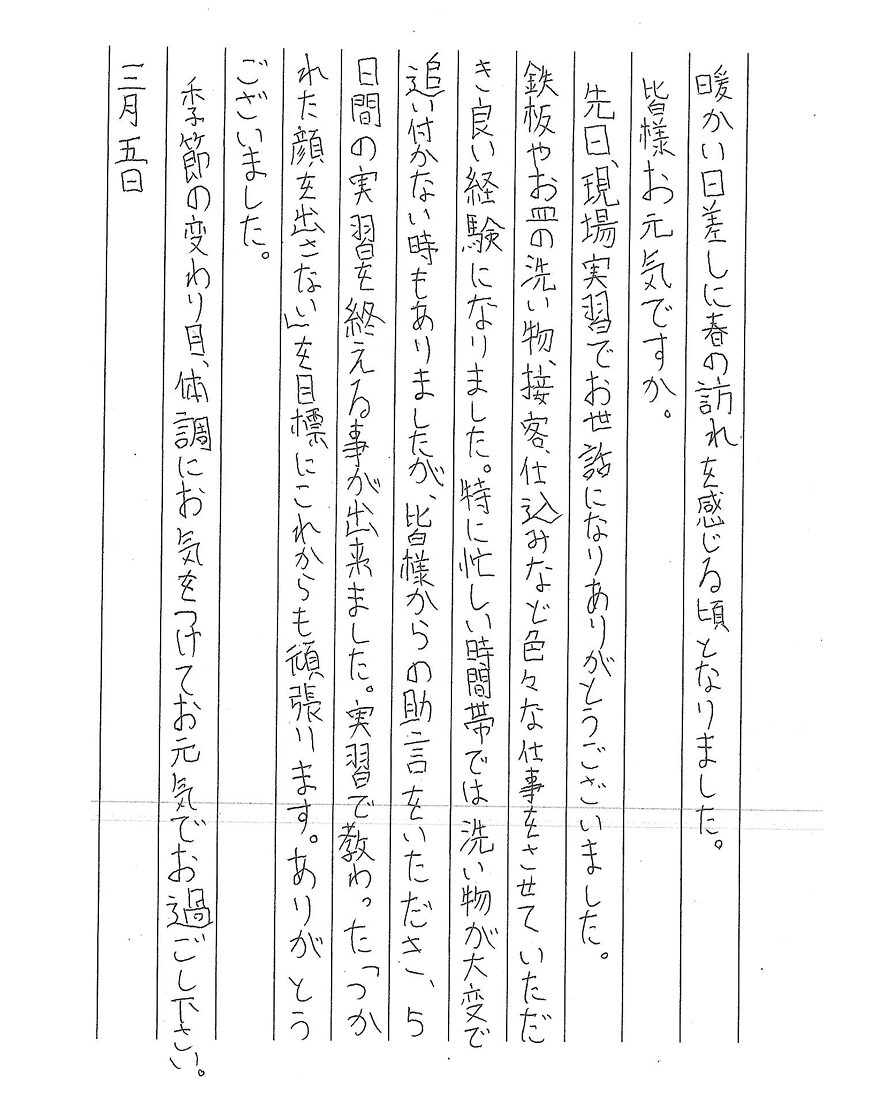 暖かい日差しに春の訪れを感じる頃となりました。
皆様お元気ですか。
先日、現場実習でお世話になりありがとうございました。
鉄板やお皿の洗い物、接客、仕込みなど色々な仕事をさせていただ
き良い経験になりました。特に忙しい時間帯では洗い物が大変で
追い付かない時もありましたが、皆様からの助言をいただき、5
日間の実習を終える事が出来ました。実習で教わった「つか
れた顔を出さない」を目標にこれからも頑張ります。ありがとう
ございました。
季節の変わり目、体調にお気をつけてお元気でお過ごし下さい。
三月五日